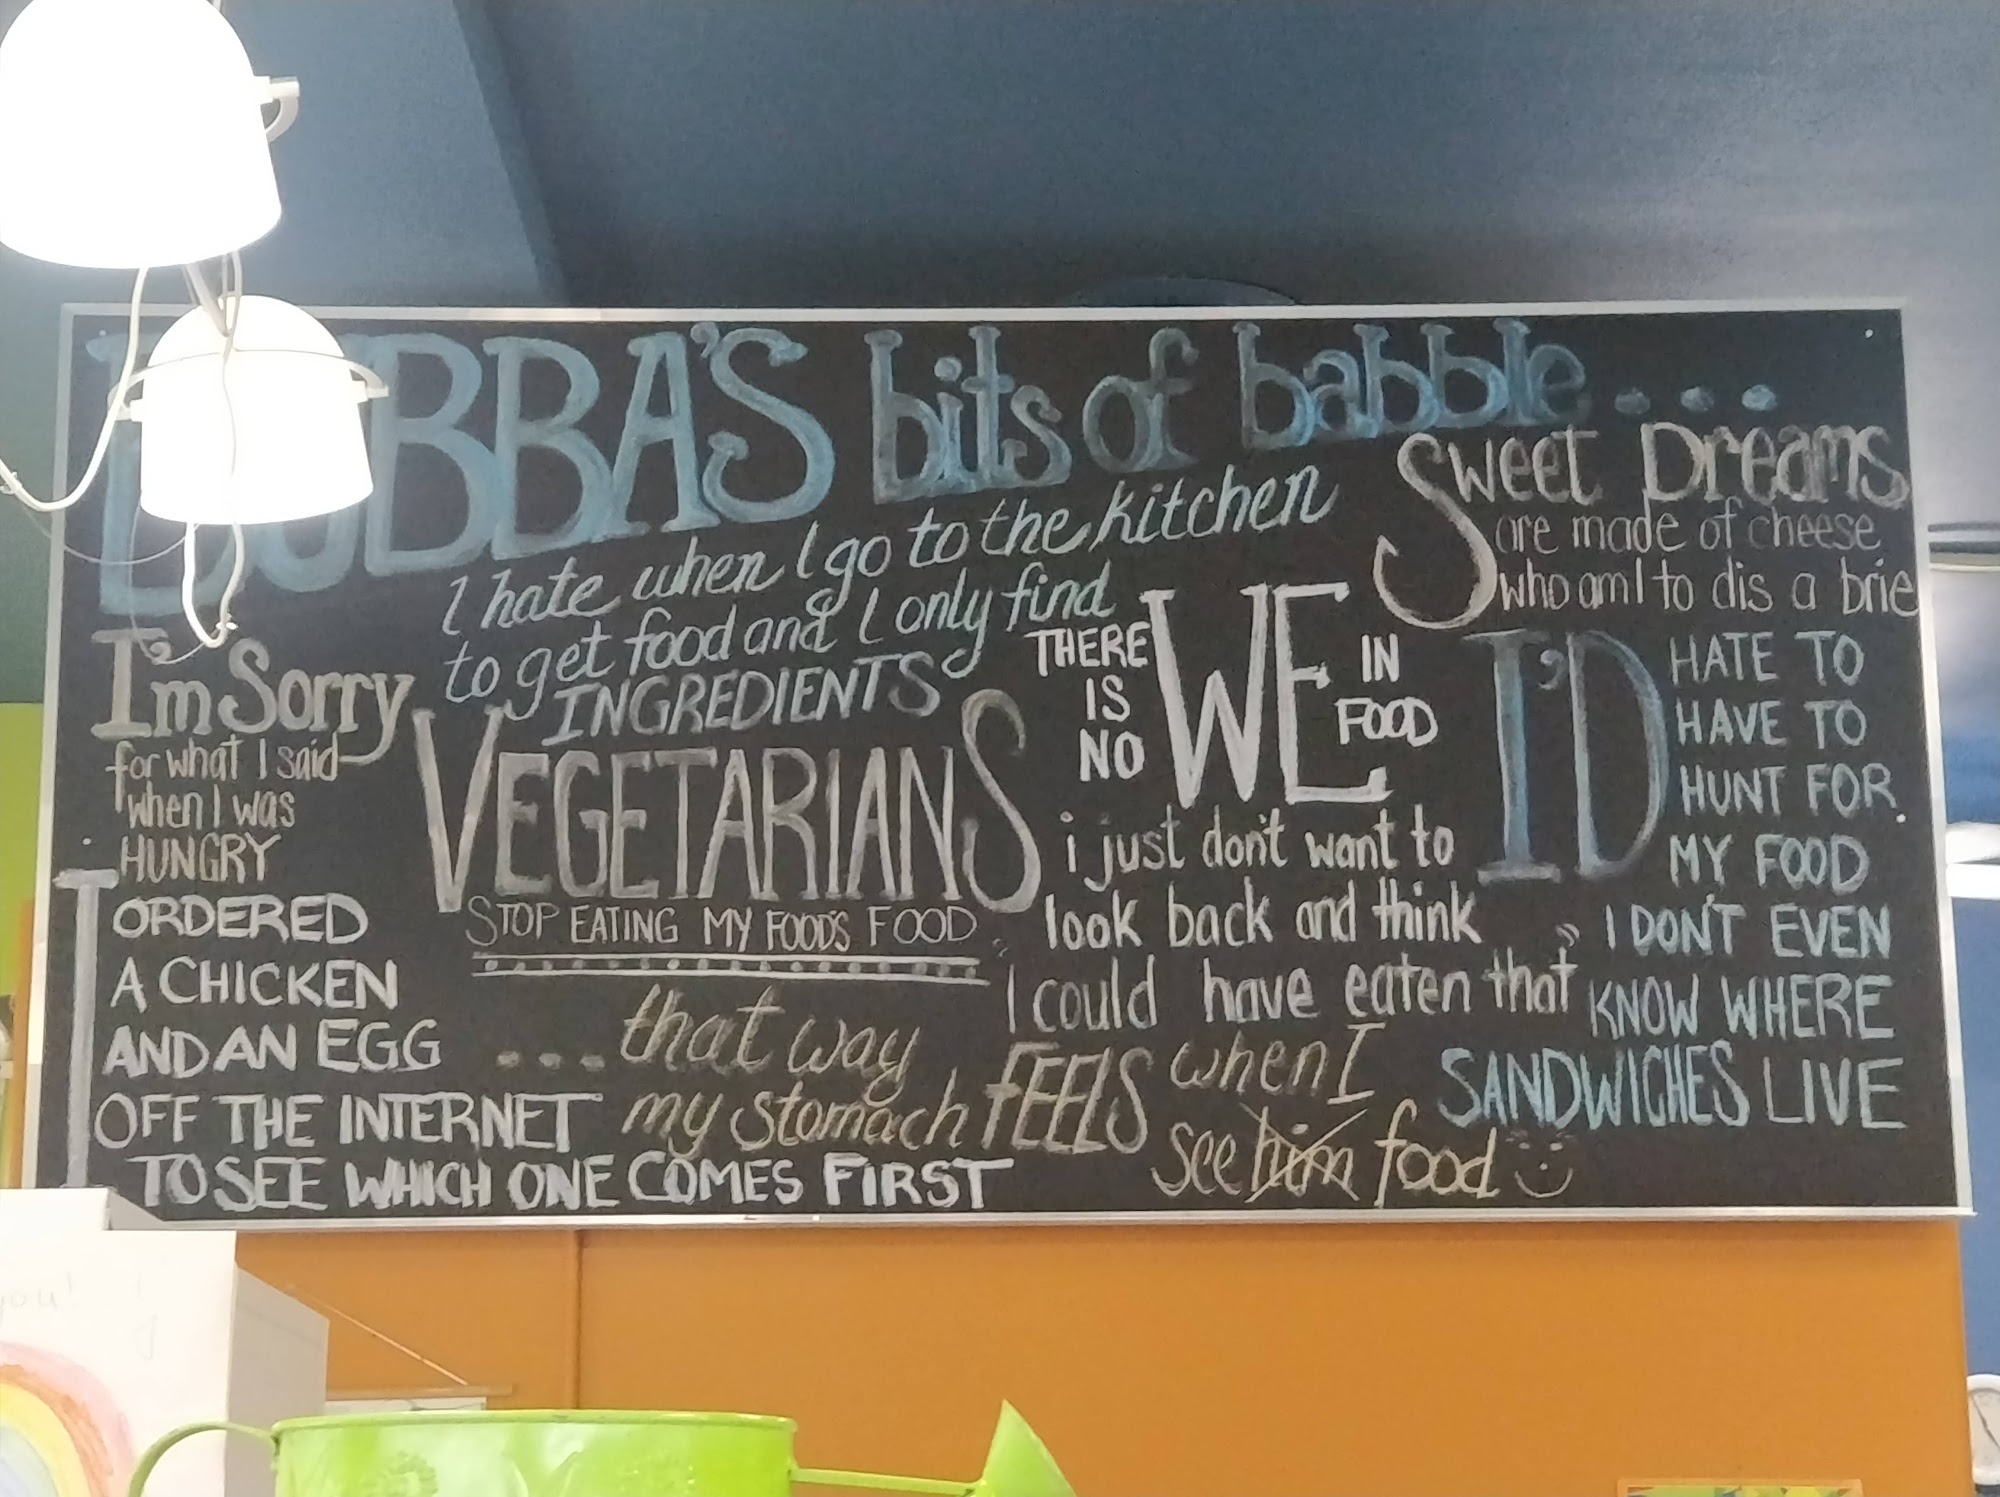 BUBBA'S bits of babble....
I hate when I go to the kitchen
to get food and I only find
INGREDIENTS
Sweet Dreams
are made of cheese
who am I to dis a brie
I'm Sorry
for what I said
when I was
HUNGRY
VEGETARIANS
STOP EATING MY FOOD'S FOOD
THERE
IS
NO
WE
IN
FOOD
I'D
HATE TO
HAVE TO
HUNT FOR
MY FOOD
I DON'T EVEN
KNOW WHERE
SANDWICHES LIVE
i just don't want to
look back and think
"I could have eaten that"
I ORDERED
A CHICKEN
AND AN EGG
OFF THE INTERNET
TO SEE WHICH ONE COMES FIRST
...that way
my stomach FEELS when I
see him food
you!